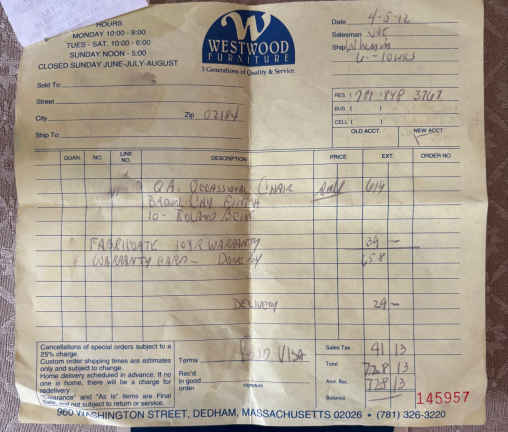 HOURS
MONDAY 10:00 - 9:00
TUES - SAT. 10:00 - 6:00
SUNDAY NOON - 5:00
CLOSED SUNDAY JUNE-JULY-AUGUST
W
WESTWOOD
FURNITURE
3 Generations of Quality & Service
Date 4-5-12
Salesman
Ship When in
Sold To
Street
City Zip 02184
Ship To
RES. (781) 848 3767
BUS. ( )
CELL ( )
OLD ACCT. NEW ACCT.
QUAN. NO. LINE NO. DESCRIPTION PRICE EXT. ORDER NO.
Q.A. Occassional Chair 614
10-
Fabricate 10 yr Warranty 39 -
Warranty Card - 658
Delivery 29 -
Cancellations of special orders subject to a
25% charge.
Custom order shipping times are estimates
only and subject to change.
Home delivery scheduled in advance. If no
one is home, there will be a charge for
redelivery
"Clearance" and "As Is" items are Final
Sale, and not subject to return or service.
Terms Visa
Rec'd
in good
order
SIGNATURE
Sales Tax 41 13
Total 728 13
Amt. Rec. 728 13
Balance
145957
960 WASHINGTON STREET, DEDHAM, MASSACHUSETTS 02026 • (781) 326-3220